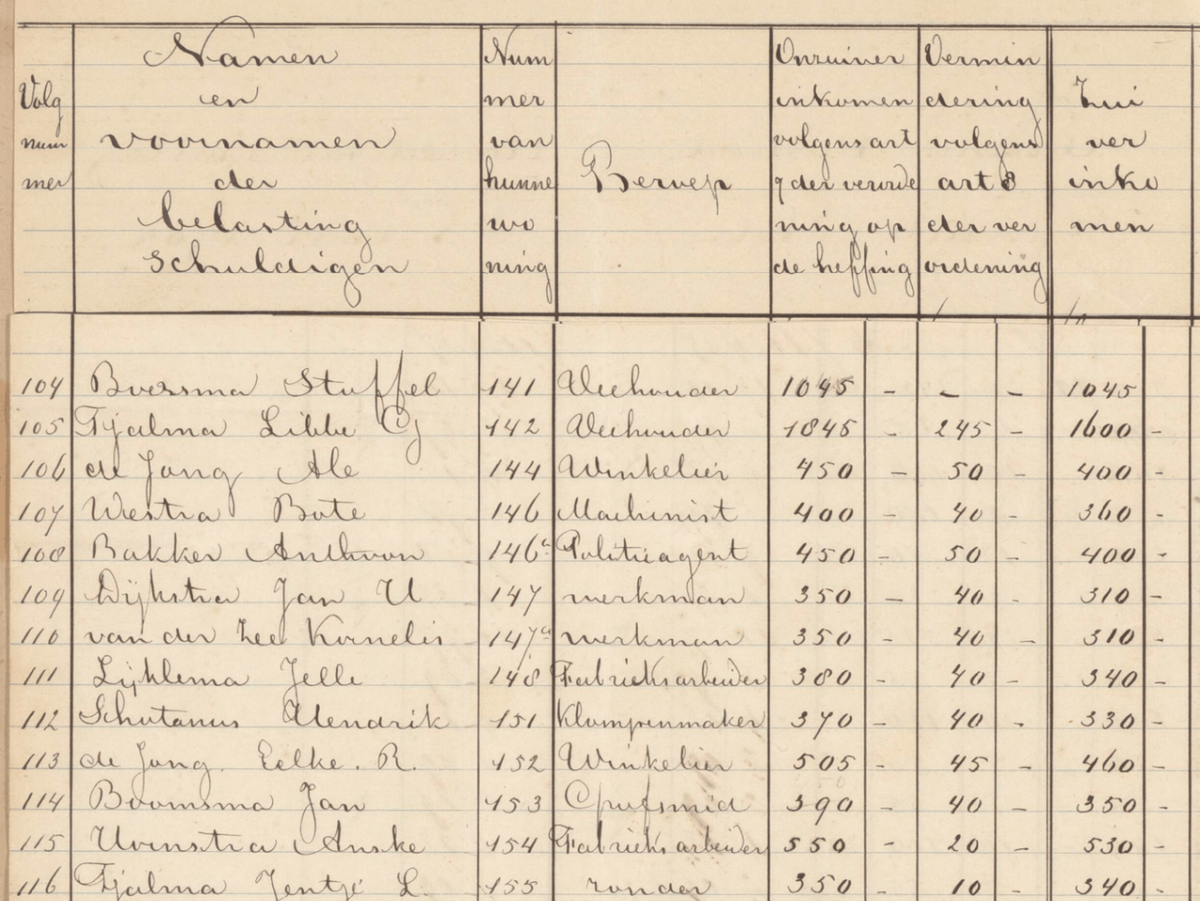 Volg
num
mer
Namen
en
voornamen
der
belasting
schuldigen
Num
mer
van
hunne
wo
ning
Beroep
Onzuiver
inkomen
volgens art
7 der verorde
ning op
de heffing
Vermin
dering
volgens
art 8
der ver
ordening
Zui
ver
inko
men
104 Boersma Stoffel 141 Veehouder 1045 - - - 1045
105 Tjalma Libbe Cj 142 Veehouder 1845 - 245 - 1600 -
106 de Jong Ale 144 Winkelier 450 - 50 - 400 -
107 Westra Bote 146 Machinist 400 - 40 - 360 -
108 Bakker Anthoon 146a Politieagent 450 - 50 - 400 -
109 Dijkstra Jan U 147 werkman 350 - 40 - 310 -
110 van der Zee Kornelis 147a werkman 350 - 40 - 310 -
111 Lijklema Jelle 148 Fabrieksarbeider 380 - 40 - 340 -
112 Schotanus Hendrik 151 Klompenmaker 370 - 40 - 330 -
113 de Jong. Eelke. R. 152 Winkelier 505 - 45 - 460 -
114 Boomsma Jan 153 Grofsmid 390 - 40 - 350 -
115 Hoenstra Anske 154 Fabrieksarbeider 550 - 20 - 530 -
116 Tjalma Jentje L. 155 zonder 350 - 10 - 340 -